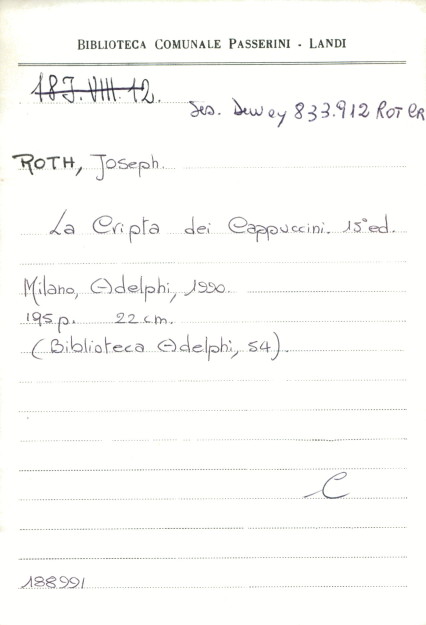 BIBLIOTECA COMUNALE PASSERINI - LANDI
18J.VIII.12.
Dewey 833.912 ROT CR
ROTH, Joseph.
La Cripta dei Cappuccini. 15ª ed.
Milano, Adelphi, 1990.
195 p. 22 cm.
(Biblioteca Adelphi, 54).
C
188991